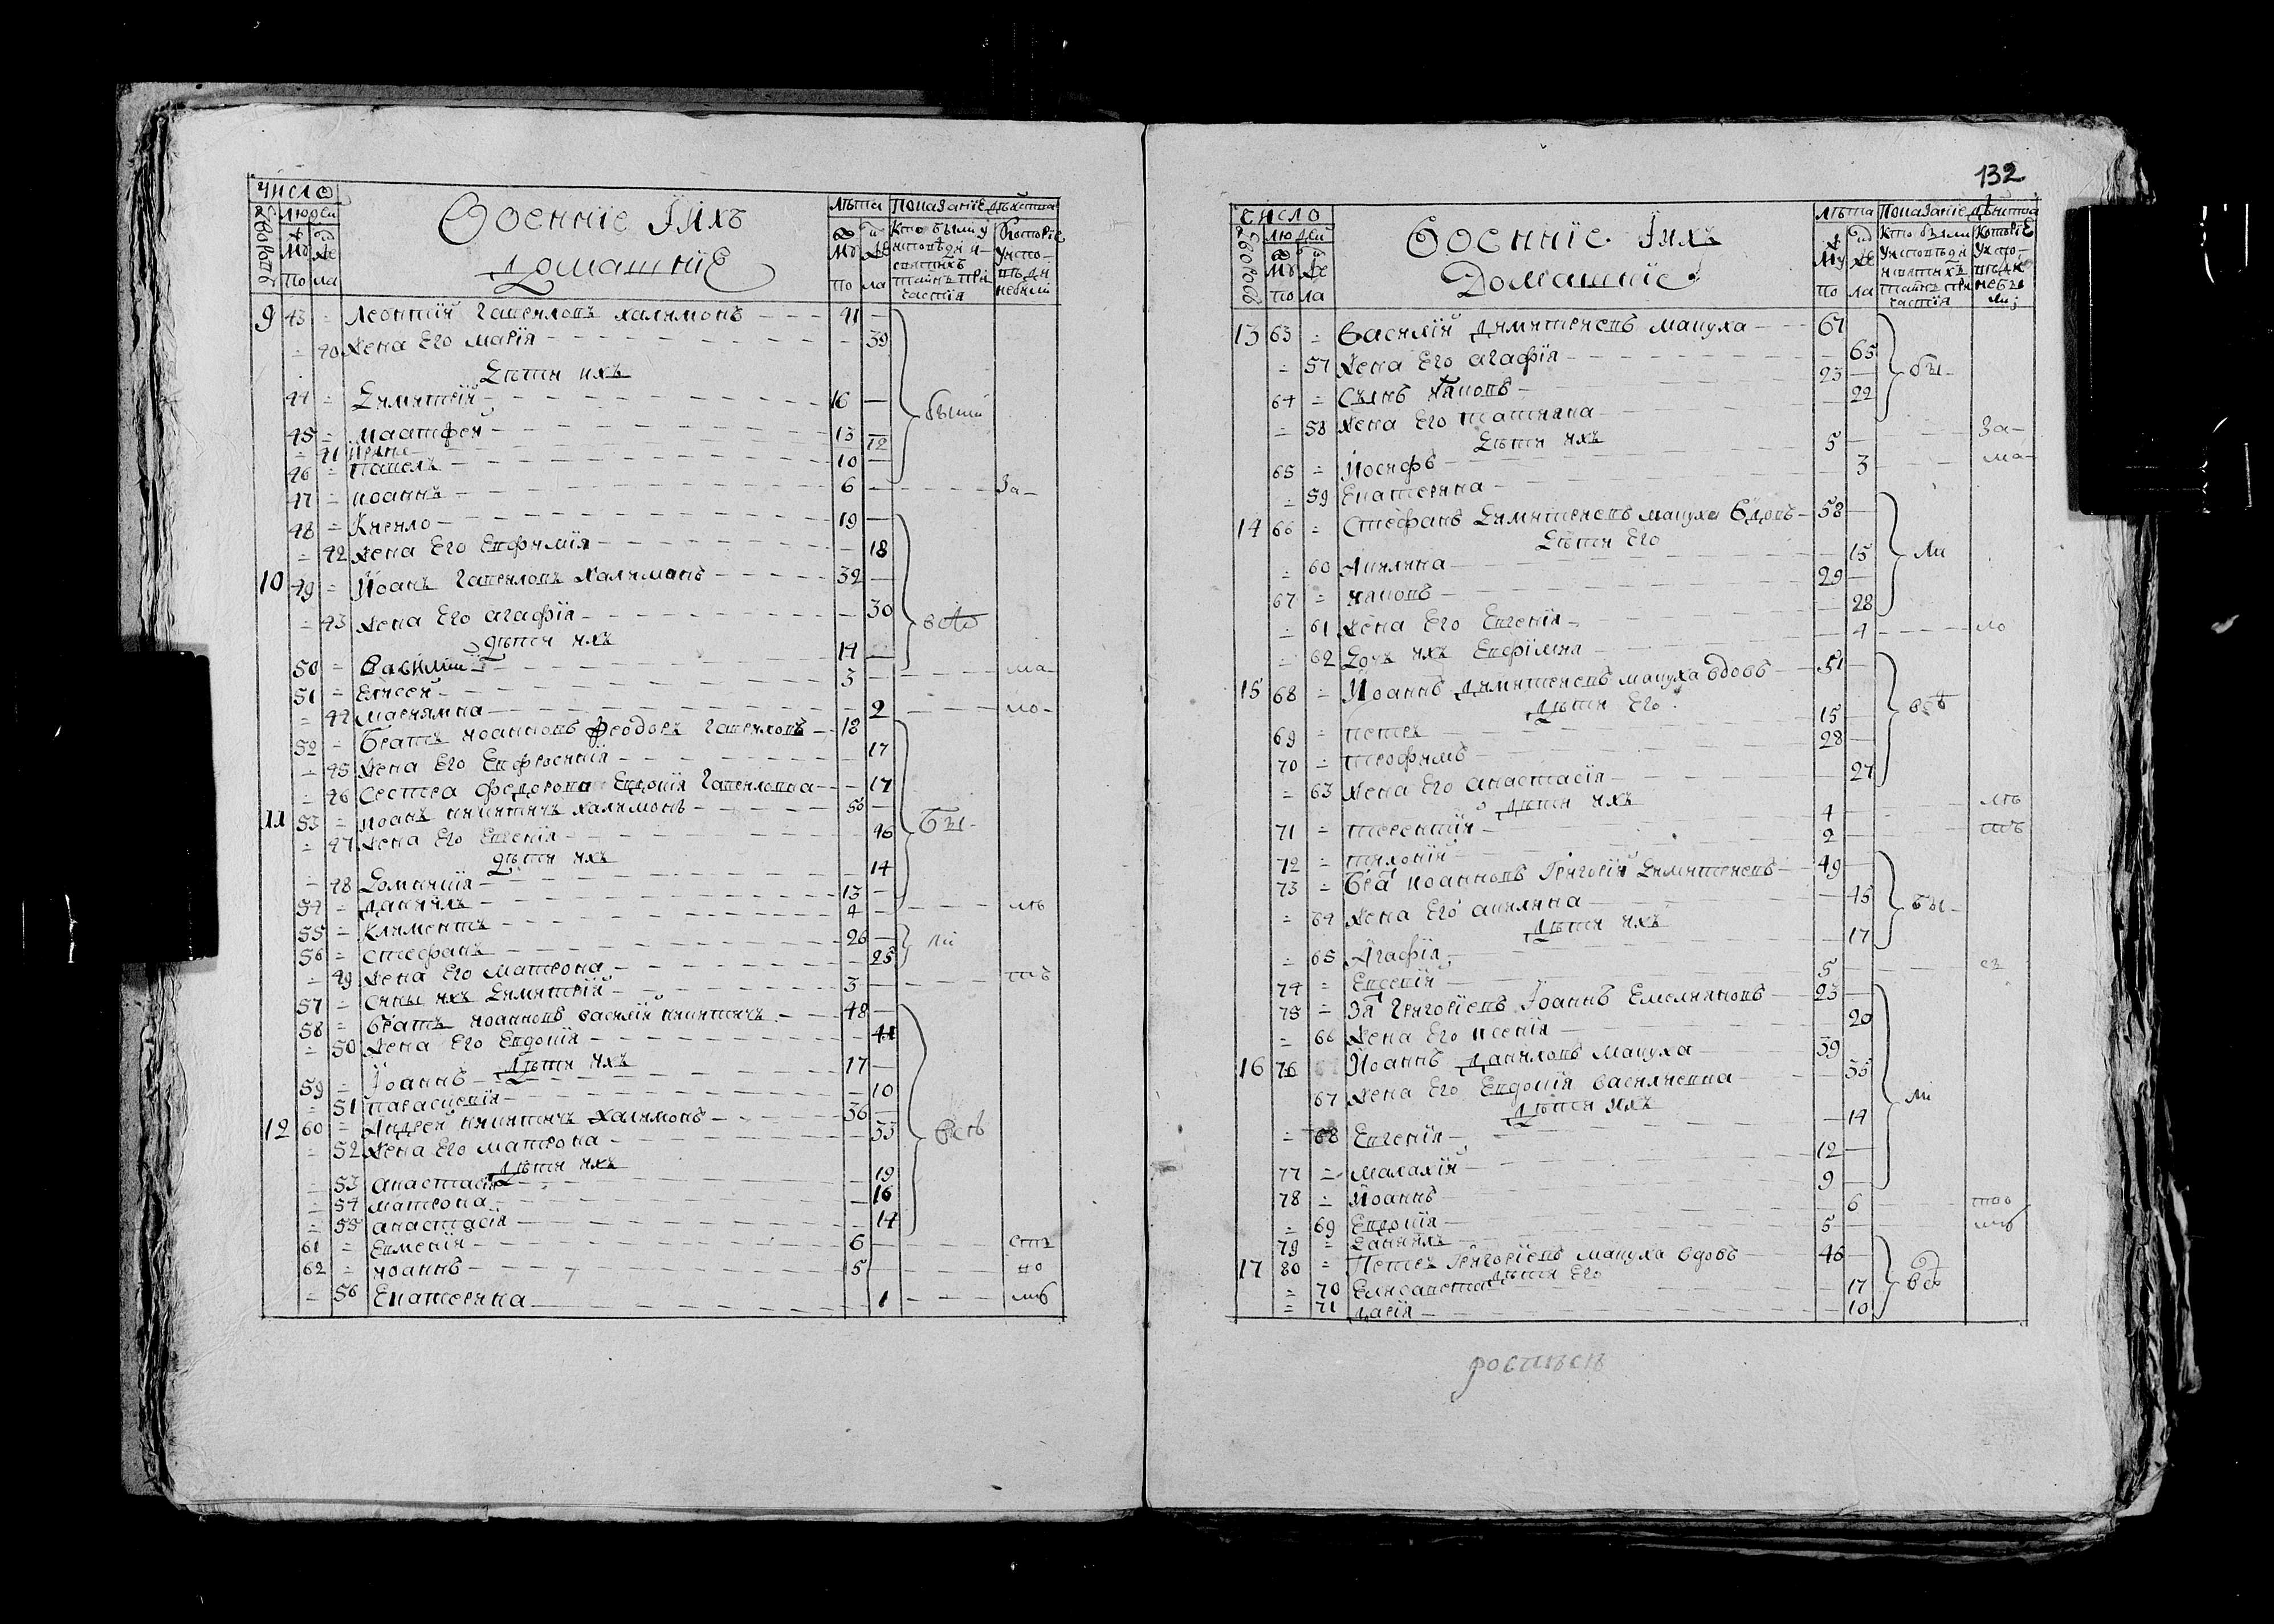 число
дворовъ
людей
Му
Же
по
ла
Военніе Іихъ
домашніе
лѣта
Показаніе дѣйства
Му
Же
по
ла
Кто были у
исповѣди и
святыхъ
таинъ при
частія
Которіе
у испо-
вѣди
небыли
9 43 = Леонтій Гавриловъ Халимонъ 41 —
= 40 Жена Его Марія — 39
Дѣти ихъ
44 = Димитрій 16 — были
45 = Матфей 13 —
= 41 Ирина 12
46 = Павелъ 10 —
47 = Иоаннъ 6 — За-
48 = Кирило 19 —
= 42 Жена Его Евфимія — 18
10 49 = Иоанъ Гавриловъ Халимонъ 32 —
= 43 Жена Его Агафія — 30
Дѣти ихъ
50 = Василий 14 —
51 = Елисей 3 — ма-
= 44 Мариямна — 2 ло-
52 = Братъ Иоанновъ Феодоръ Гавриловъ 18
= 45 Жена Его Евфросинія — 17
= 46 Сестра Федорова Евдокія Гавриловна — 17
11 53 = Иоанъ Никитичъ Халимонъ 50 —
= 47 Жена Его Евгенія — 46 Бы-
Дѣти ихъ
= 48 Домникія — 14
54 = Даниилъ 13 —
55 = Климентъ 4 — лѣ
56 = Стефанъ 26 — ли
= 49 Жена Его Матрона — 25
57 = Сынъ ихъ Димитрій 3 — тъ
58 = Братъ Иоанновъ Василій Никитичъ 48 —
= 50 Жена Его Евдокія — 44
Дѣти ихъ
59 = Іоаннъ 17 —
= 51 Параскевія — 10
12 60 = Андрей Никитичъ Халимонъ 36 —
= 52 Жена Его Матрона — 33
Дѣти ихъ
= 53 Анастасія — 19
= 54 Матрона — 16
= 55 Анастасія — 14
61 = Евменій 6 — ств
62 = Иоаннъ 5 но
= 56 Екатерина 1
132
число
дворовъ
людей
Му
Же
по
ла
Военніе Іихъ
Домашніе
лѣта
Показаніе дѣйства
Му
Же
по
ла
Кто были
у исповѣди
и святыхъ
таинъ при
частія
Которіе
у испо-
вѣди
небы
ли
13 63 = Василій Димитріевъ Мацуха 67
= 57 Жена Его Агафія — 65
64 = Сынъ Яковъ 23 — бы-
= 58 Жена Его Татияна — 22
Дѣти ихъ
65 = Иосифъ 5 — За-
= 59 Екатерина — 3 ма-
14 66 = Стефанъ Димитріевъ Мацуха Вдовъ 58 —
Дѣти Его
= 60 Акилина — 15 ли
67 = Яковъ 29 —
= 61 Жена Его Евгенія — 28
= 62 Дочь ихъ Евфімия — 4 ло
15 68 = Иоаннъ Димитріевъ Мацуха вдовъ 51 —
Дѣти Его
69 = Петръ 15 —
70 = Трофимъ 28 —
= 63 Жена Его Анастасія — 27
Дѣти ихъ
71 = Терентій 4 лѣ
72 = Тихоній 2 тъ
73 = Бра Иоанновъ Григорій Димитріевъ 49 —
= 64 Жена Его Акилина — 45 Бы-
Дѣти ихъ
= 65 Агафія — 17
74 = Евсевій 5 —
75 = Зя Григоріевъ Іоаннъ Емелияновъ 23 —
= 66 Жена Его Ксенія 20
16 76 Иоаннъ Даниловъ Мацуха 39
67 Жена Его Евдокія Василиевна — 35
Дѣти ихъ
= 68 Евгенія — 14 ли
77 = Малахій 12 —
78 = Иоаннъ 9 —
= 69 Евдокія — 6 тво
79 = Даниилъ 5 —
17 80 = Петръ Григоріевъ Мацуха вдовъ 46 —
Дѣти Его
= 70 Елисавета — 17
= 71 Дарія — 10
роспись